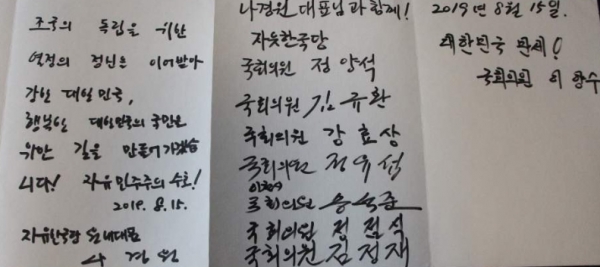 조국의 독립을 위한
열정의 정신을 이어받아
강한 대한민국,
행복한 대한민국의 국민을
위한 길을 만들어가겠습
니다! 자유민주주의 수호!
2019. 8. 15.
자유한국당 원내대표
나 경 원
나경원 대표님과 함께!
자유한국당
국회의원 정 양 석
국회의원 김 규 환
국회의원 강 효 상
국회의원 정 유 섭
국회의원
국회의원 정 점 식
국회의원 김 정 재
2019년 8월 15일.
대한민국 만세!
국회의원 이 양 수